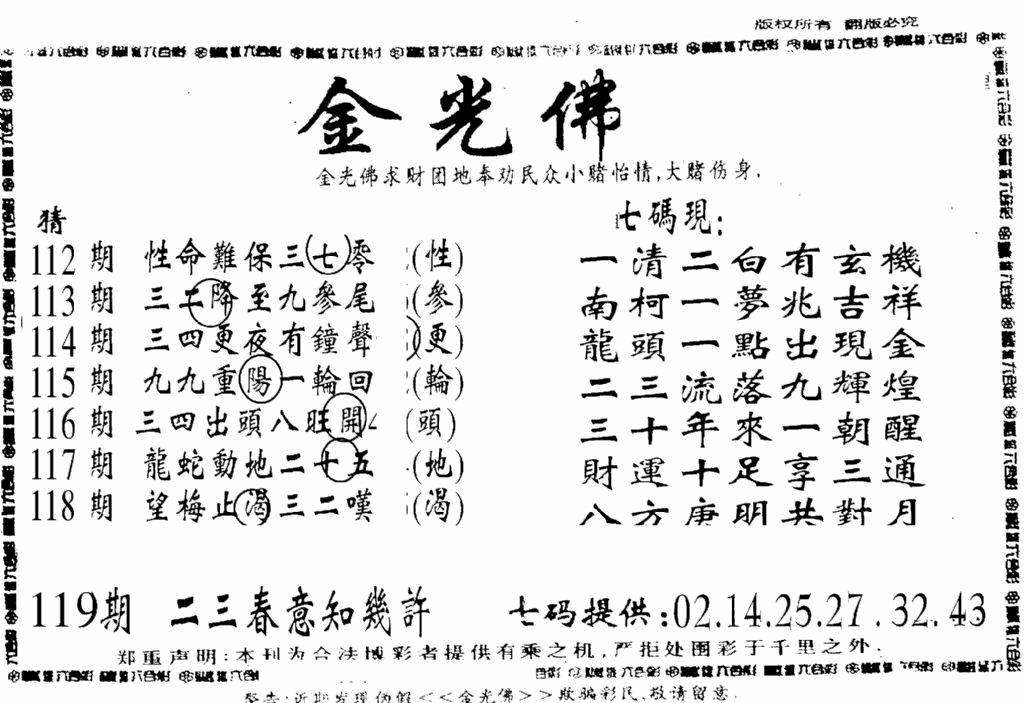 版权所有 翻版必究
金光佛
金光佛求财团地奉劝民众小赌怡情,大赌伤身.
猜
七碼現:
112期 性命難保三七零 (性)
一清二白有玄機
113期 三二降至九參尾 (參)
南柯一夢兆吉祥
114期 三四更夜有鐘聲 (更)
龍頭一點出現金
115期 九九重陽一輪回 (輪)
二三流落九輝煌
116期 三四出頭八旺開 (頭)
三十年來一朝醒
117期 龍蛇動地二十五 (地)
財運十足享三通
118期 望梅止渴三二嘆 (渴)
八方庚明共對月
119期 二三春意知幾許 七码提供:02.14.25.27.32.43
郑重声明:本刊为合法博彩者提供有乘之机,严拒处圈彩于千里之外.
警告:近期发现伪假<<金光佛>>欺骗彩民,敬请留意.